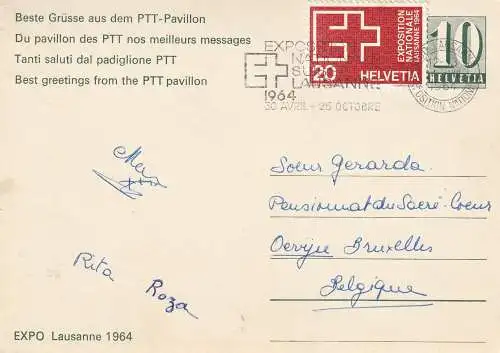 Beste Grüsse aus dem PTT-Pavillon
Du pavillon des PTT nos meilleurs messages
Tanti saluti dal padiglione PTT
Best greetings from the PTT pavilion
EXPOSITION NATIONALE LAUSANNE 1964
20 HELVETIA
10
HELVETIA
EXPOS
NA
SU
LAUSANNE
1964
30 AVRIL - 25 OCTOBRE
Soeur Gerarda
Pensionnat du Sacré-Coeur
Bruxelles
Belgique
Rita
Roza
EXPO Lausanne 1964